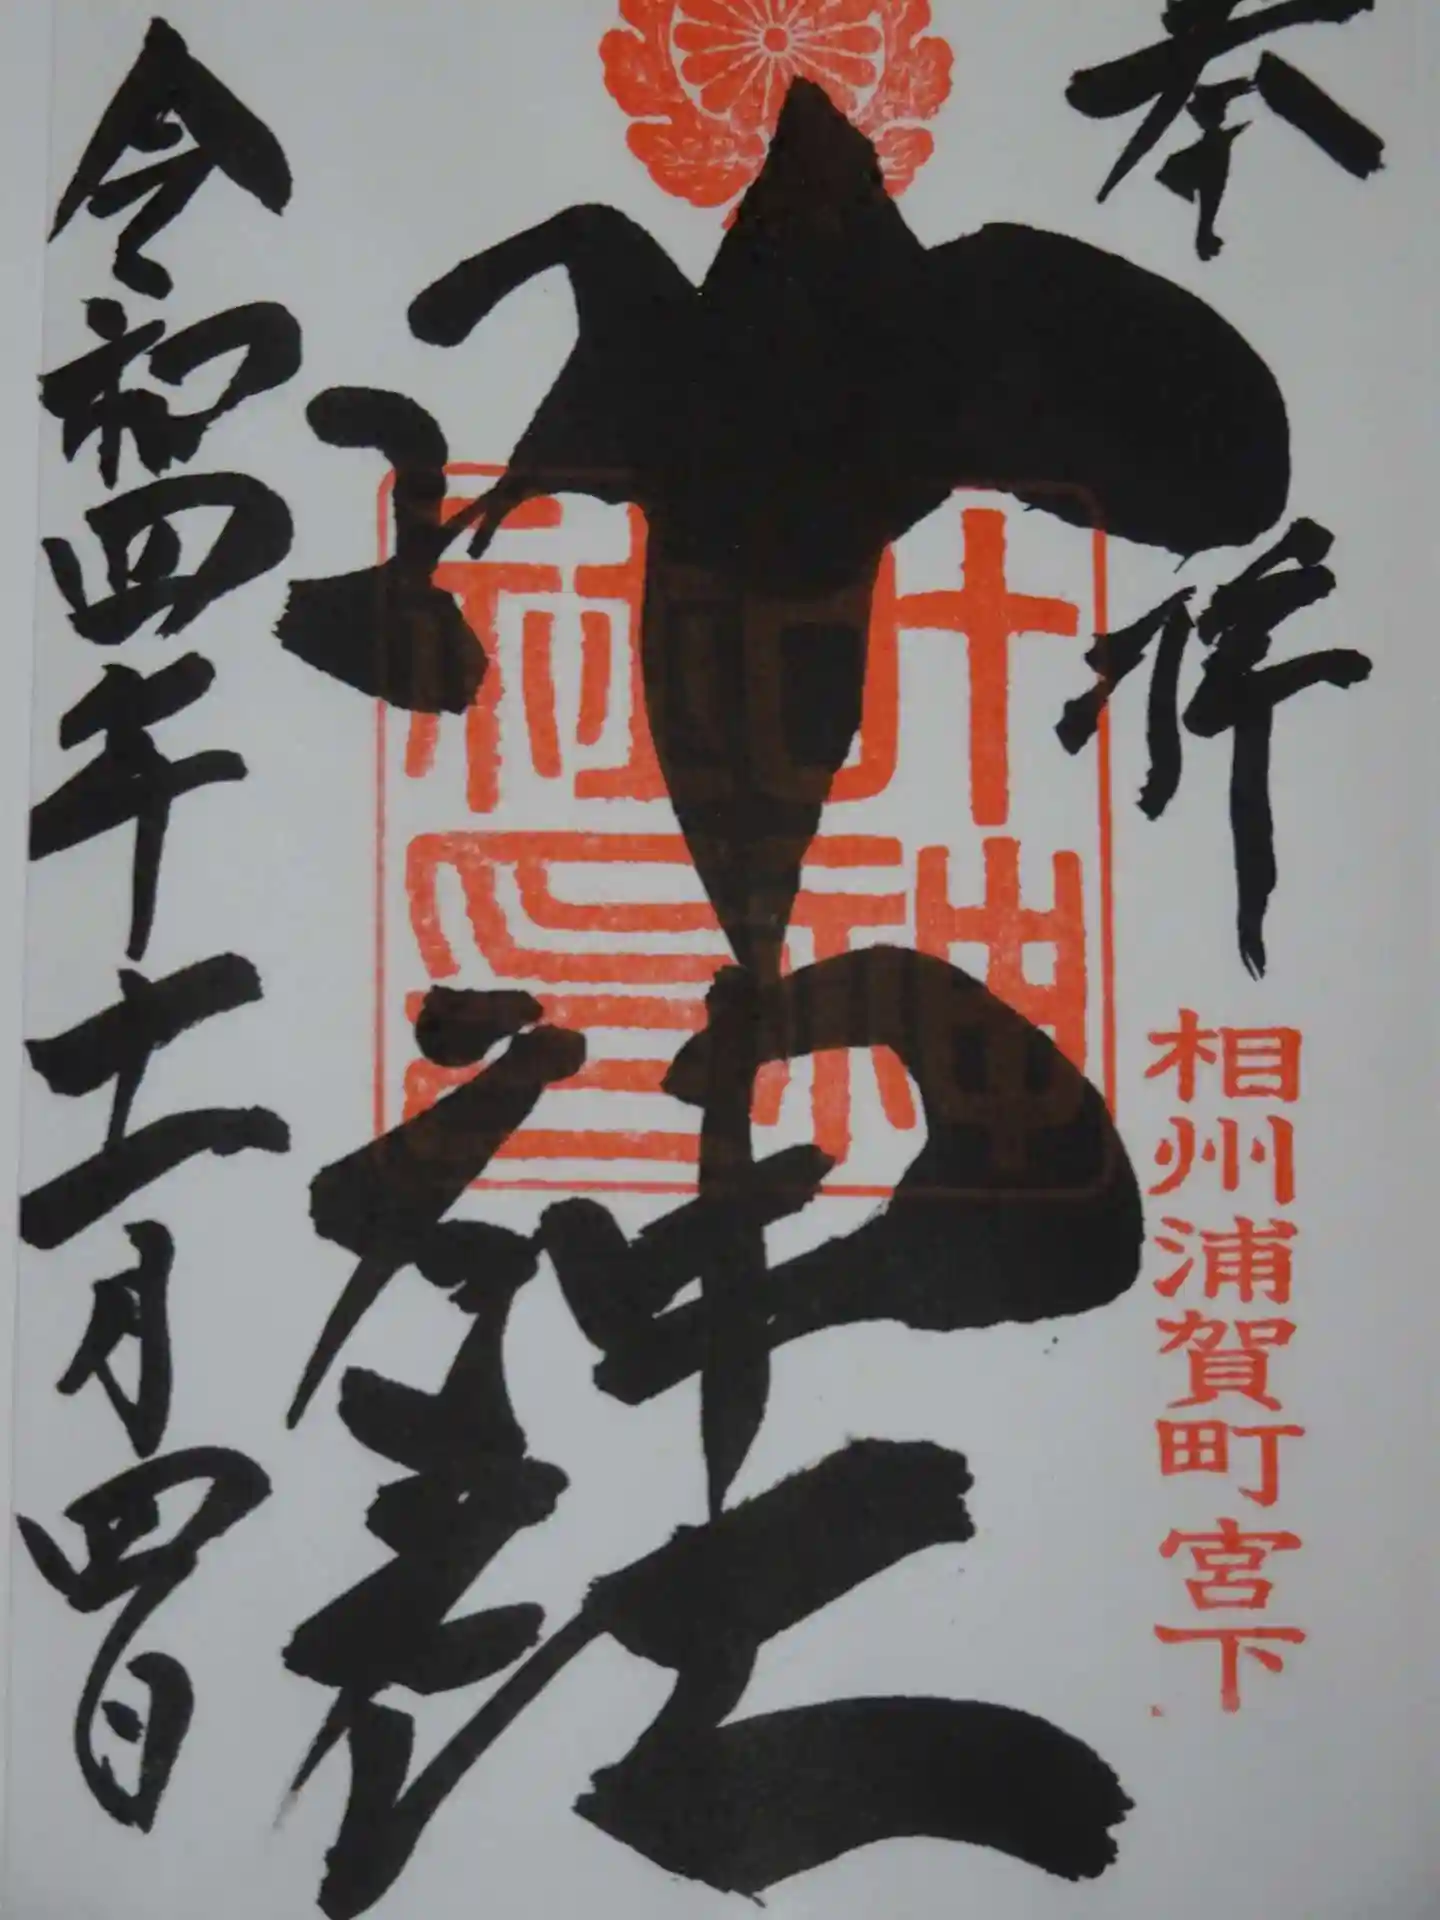 奉拝
相州浦賀町宮下
叶神社
叶神
社印
令和四年十一月四日